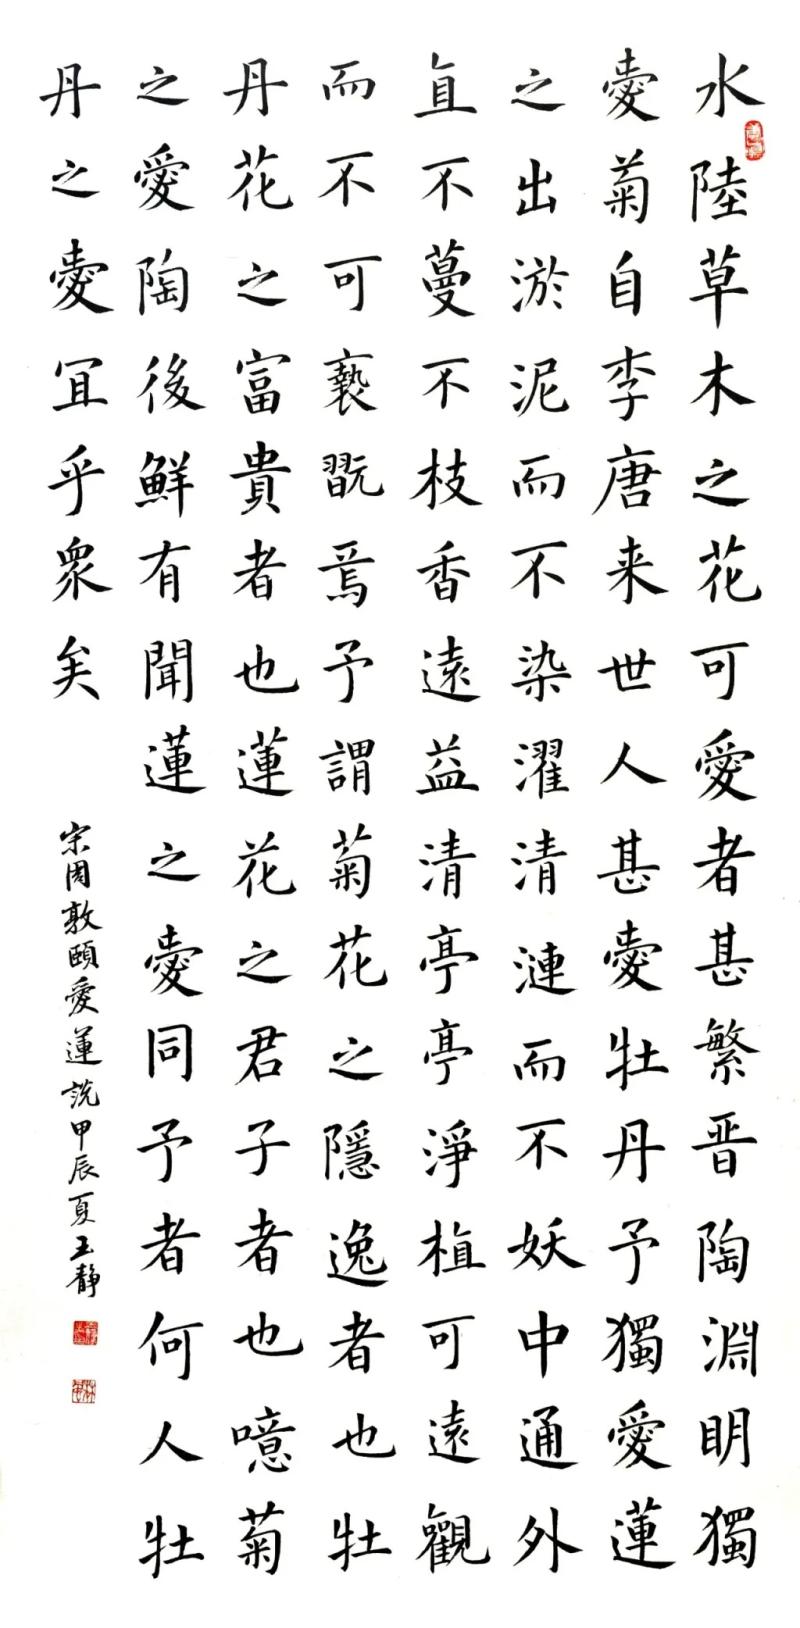 水陸草木之花可愛者甚繁晋陶淵明獨
愛菊自李唐来世人甚愛牡丹予獨愛蓮
之出淤泥而不染濯清漣而不妖中通外
直不蔓不枝香遠益清亭亭淨植可遠觀
而不可褻翫焉予謂菊花之隱逸者也牡
丹花之富貴者也蓮花之君子者也噫菊
之愛陶後鮮有聞蓮之愛同予者何人牡
丹之愛宜乎衆矣
宋周敦頤愛蓮説甲辰夏王靜